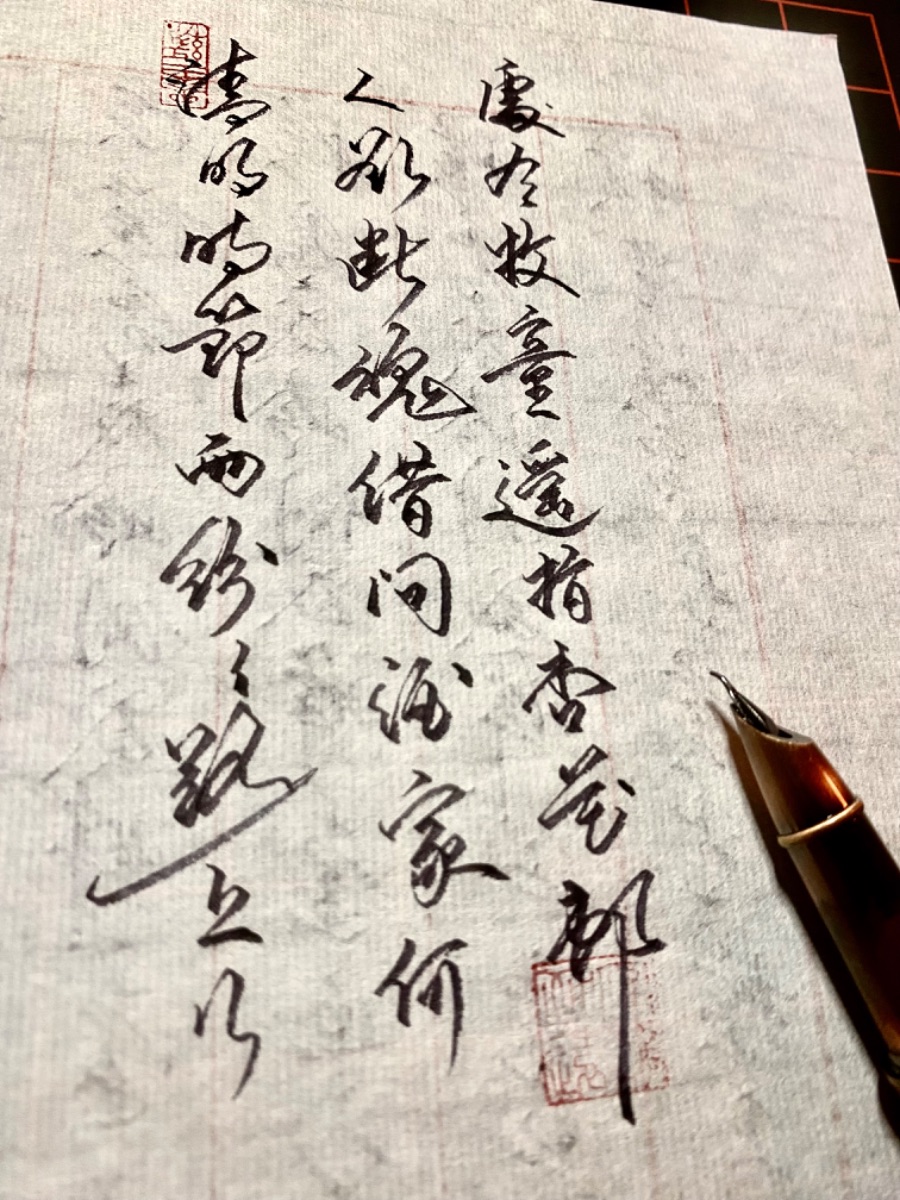 清明時節雨紛々路上行
人欲斷魂借問酒家何
處有牧童遙指杏花邨